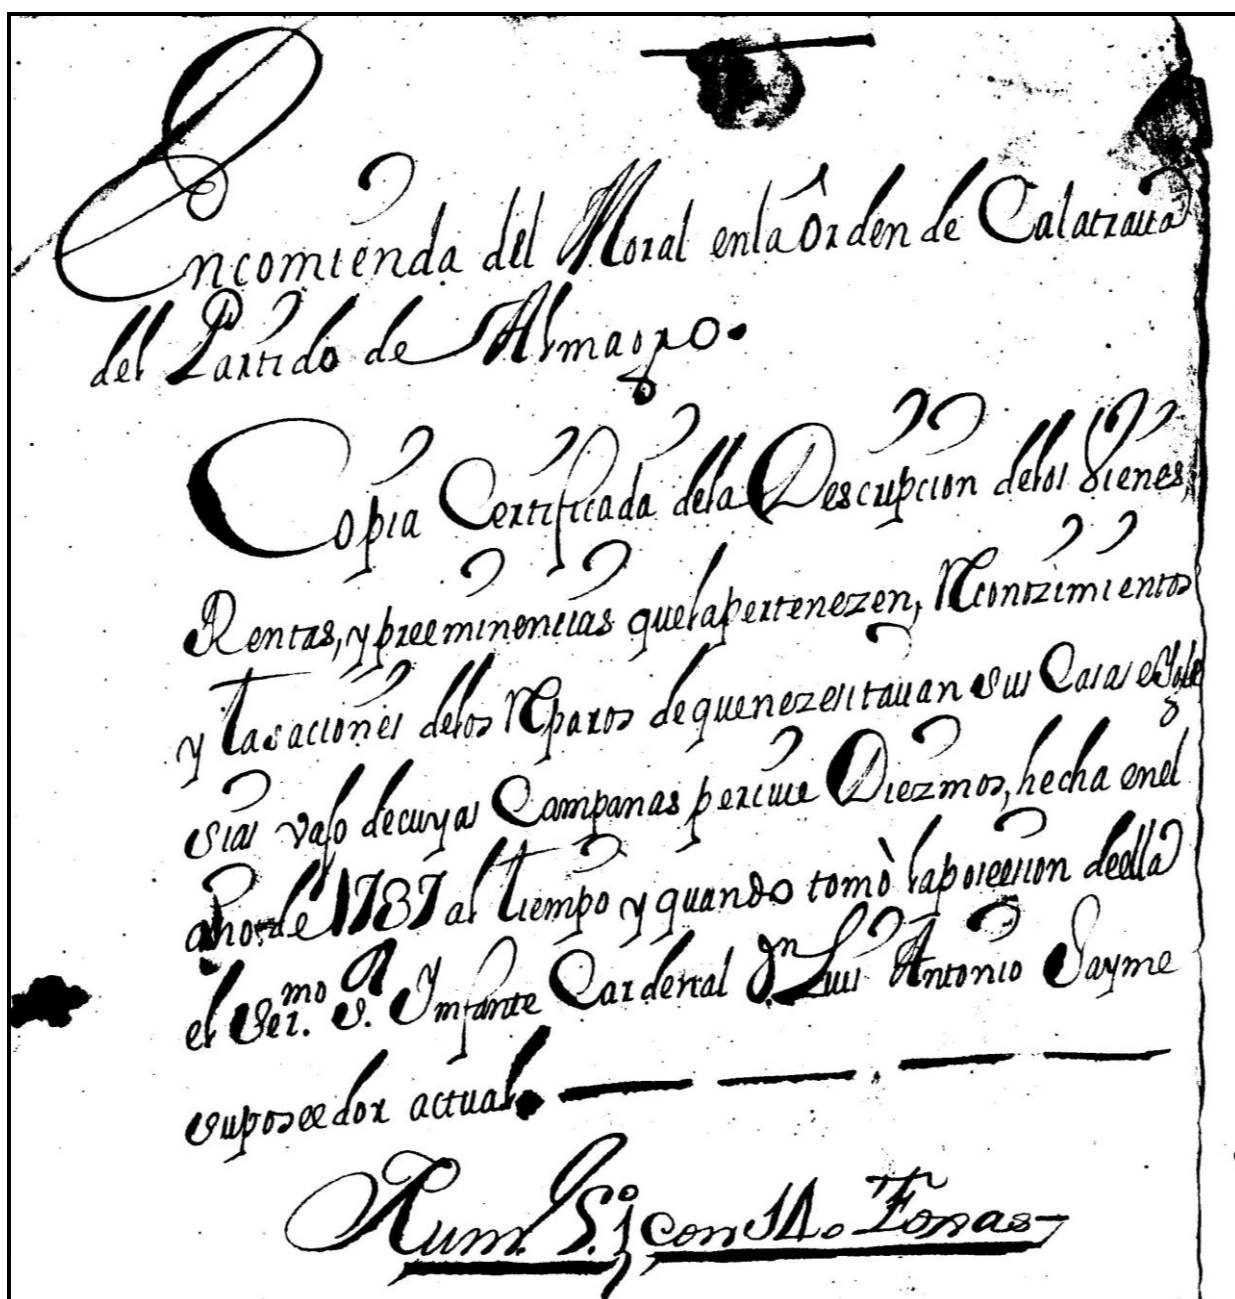 Encomienda del Moral enla Orden de Calatraua
del Partido de Almagro.
Copia Certificada dela Descripcion delos Vienes,
Rentas, y preeminencias quela pertenezen, Reconozimientos
y tasaciones delos Reparos dequenezesitauan sus Casas e Igle
sias vajo decuyas Campanas perciue Diezmos, hecha enel
año de 1737 al tiempo y quando tomò laposesion deella
el Ser.mo S.r Ynfante Cardenal Dn. Luis Antonio Jayme
suposeedor actual.
Num. 5.; con